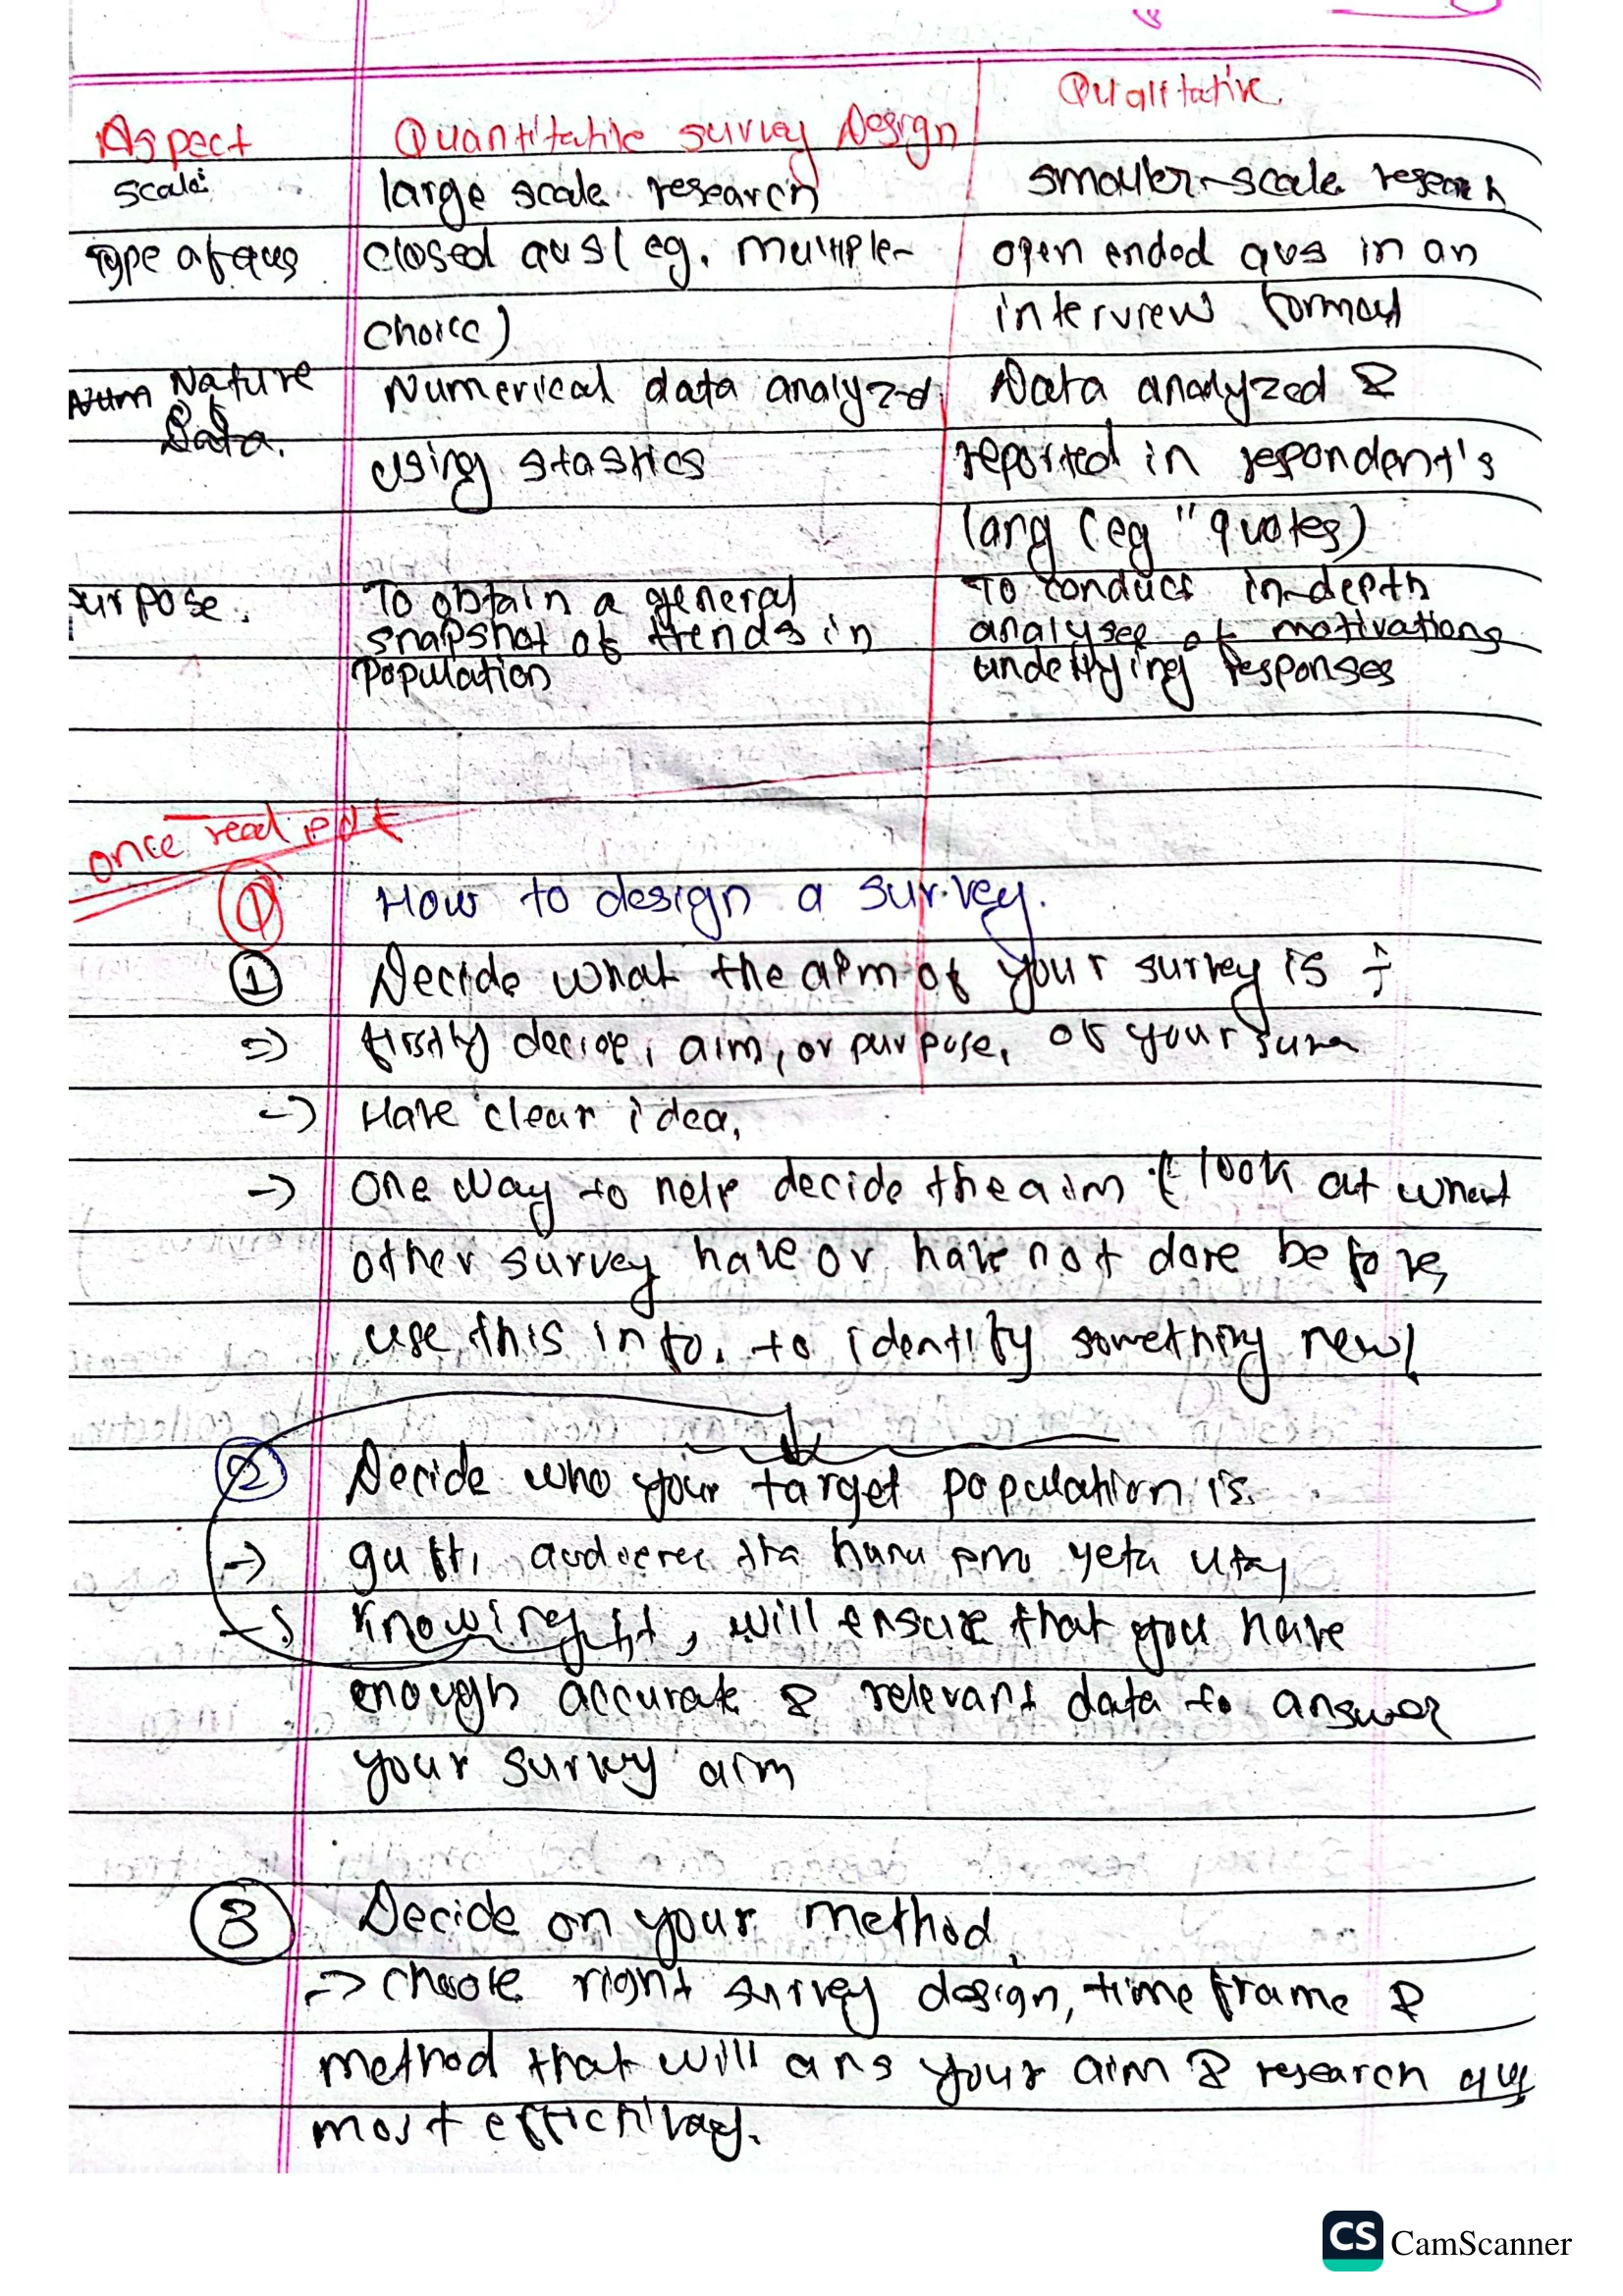 Aspect Quantitative survey Design Qualitative
Scale: large scale research smaller-scale research
Type of ques closed qus (eg. multiple- open ended qus in an
choice) interview format
Nature Numerical data analyzed Data analyzed &
of
Data. using stastics reported in respondent's
lang (eg "quotes)
urpose. To obtain a general To conduct in-depth
snapshot of trends in analyses of motivations
Population underlying responses
once read pdf
Q How to design a survey.
① Decide what the aim of your survey is ÷
=> firstly decide, aim, or purpose, of your
-> Have clear idea,
-> One way to help decide the aim look at what
other survey have or have not done before,
use this info. to identify something new!
② Decide who your target population is.
->
-> Knowing it, will ensure that you have
enough accurate & relevant data to answer
your survey aim
③ Decide on your method.
=> choose right survey design, time frame &
method that will ans your aim & research qus
most effectively.
CS CamScanner